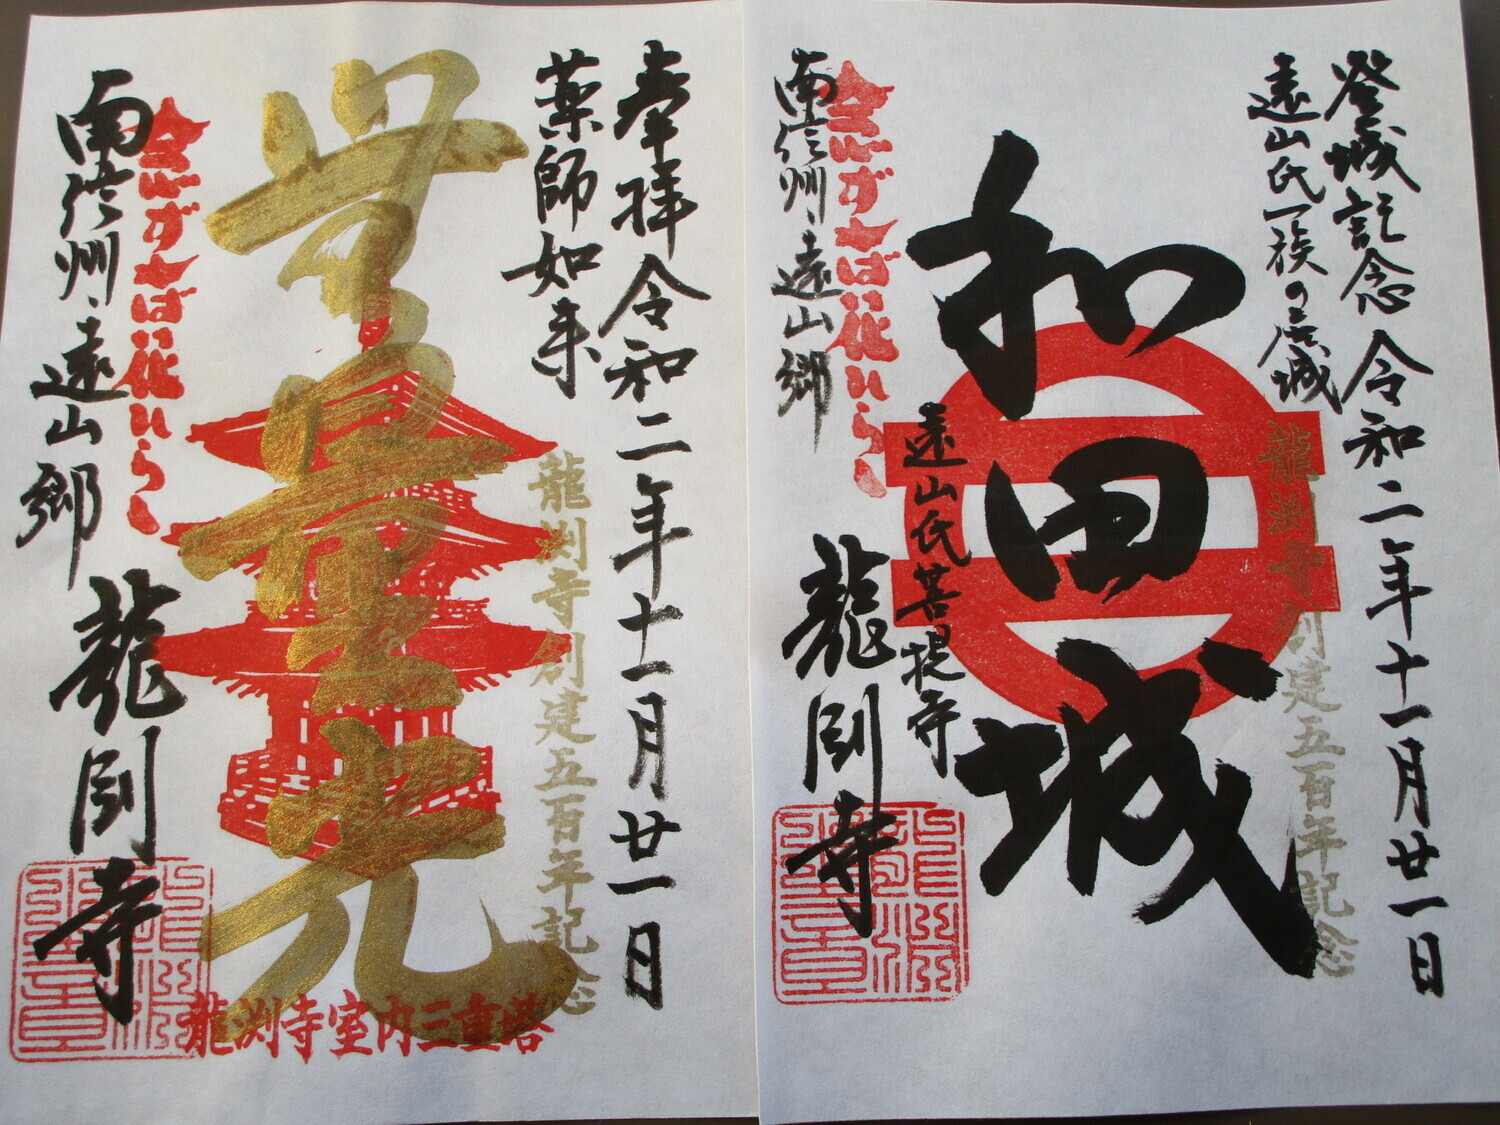 登城記念 令和二年十一月廿一日
遠山氏一族の居城
龍渕寺創建五百年記念
和田城
遠山氏菩提寺
念ずれば花ひらく
南信州 遠山郷
龍渕寺
奉拝 令和二年十一月廿一日
薬師如来
龍渕寺創建五百年記念
無量光
龍渕寺室内三重塔
念ずれば花ひらく
南信州 遠山郷
龍渕寺